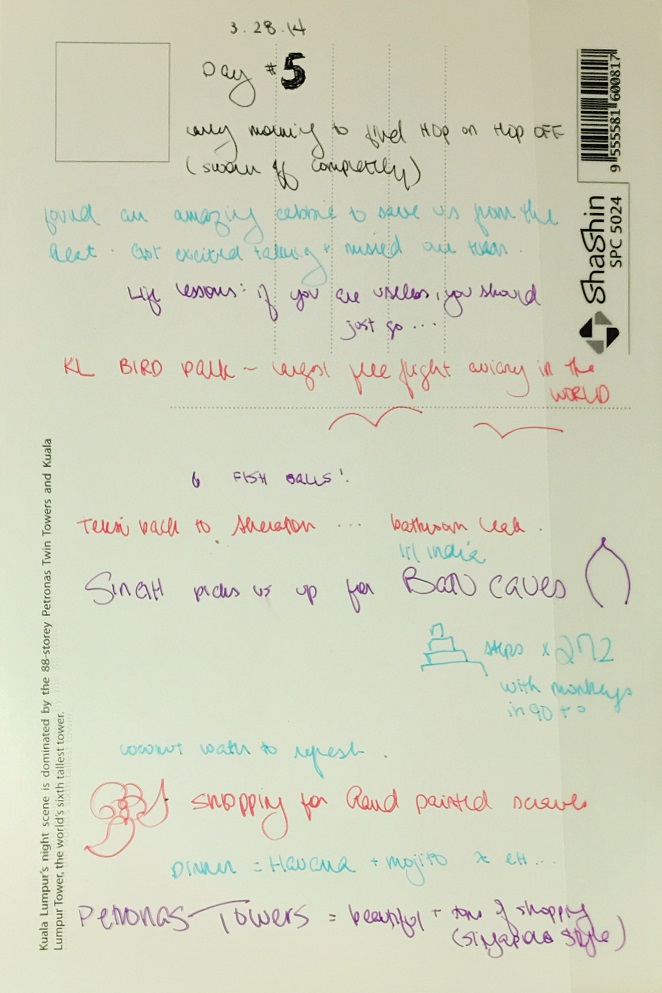 3.28.14
Day #5
early morning to find HOP on HOP OFF
(swore off completely)
found an amazing to save us from the
heat. Got excited talking + missed our
Life lessons: if you are useless, you should
just go...
KL BIRD PARK ~ largest free flight aviary in the
WORLD
6 FISH BALLS!
back to Sheraton ... bathroom leak.
lil india
SINGH picks us up for BATU CAVES
steps x 272
with monkeys
in 90 + °
coconut water to refresh.
shopping for hand painted scarves
Dinner = Havana + mojito x eh...
Petronas Towers = beautiful + tons of shopping
(singapore style)
9 555581 600817
ShaShin
SPC 5024
Kuala Lumpur's night scene is dominated by the 88-storey Petronas Twin Towers and Kuala
Lumpur Tower, the world's sixth tallest tower.